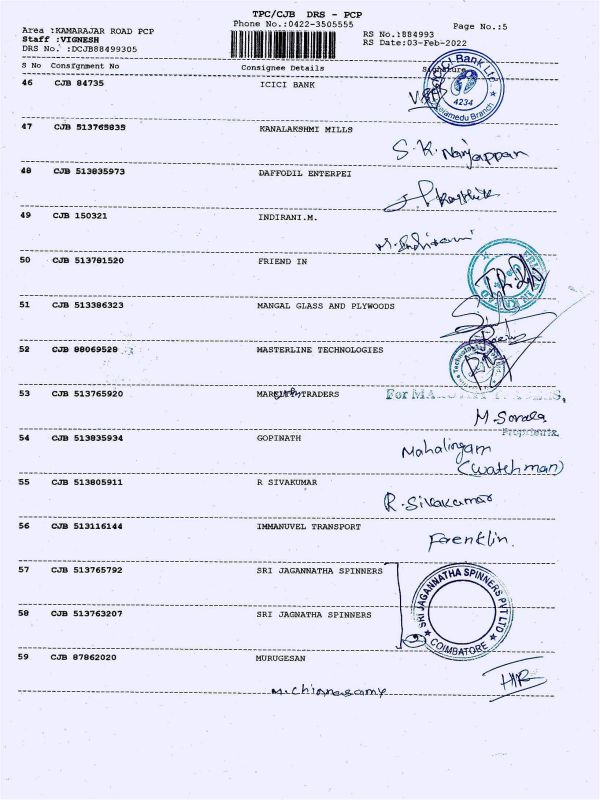 TPC/CJB DRS - PCP
Area :KAMARAJAR ROAD PCP Phone No.:0422-3505555 Page No.:5
Staff :VIGNESH RS No.:884993
DRS No. :DCJB88499305 RS Date:03-Feb-2022
S No Consignment No Consignee Details Signature
46 CJB 84735 ICICI BANK
ICICI Bank Ltd
4234
Peelamedu Branch
47 CJB 513765835 KANALAKSHMI MILLS
S. K. Nanjappan
48 CJB 513835973 DAFFODIL ENTERPEI
49 CJB 150321 INDIRANI.M.
M. Indirani
50 CJB 513781520 FRIEND IN
51 CJB 513386323 MANGAL GLASS AND PLYWOODS
52 CJB 88069528 MASTERLINE TECHNOLOGIES
53 CJB 513765920 TRADERS
For
M. Sonala
Proprietrix
54 CJB 513835934 GOPINATH
Mahalingam
(watchman)
55 CJB 513805911 R SIVAKUMAR
R. Sivakumar
56 CJB 513116144 IMMANUVEL TRANSPORT
Frenklin.
57 CJB 513765792 SRI JAGANNATHA SPINNERS
SRI JAGANNATHA SPINNERS PVT LTD
COIMBATORE
58 CJB 513763207 SRI JAGNATHA SPINNERS
59 CJB 87862020 MURUGESAN
M. Chinnasamy